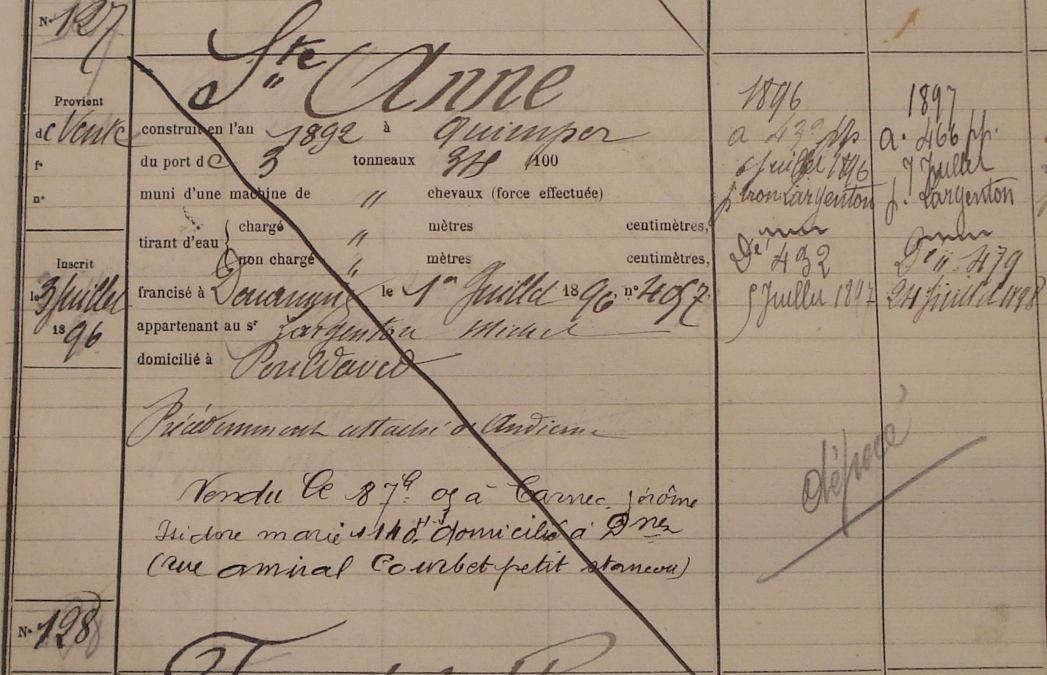 N° 127
Ste Anne
Provient
de Vente
f°
n°
construit en l'an 1892 à Quimper
du port de 3 tonneaux 34 100
muni d'une machine de " chevaux (force effectuée)
tirant d'eau { chargé " mètres centimètres,
non chargé " mètres centimètres,
Inscrit
le 3 Juillet
1896
francisé à Douarnenez le 1er Juillet 1896 n° 4057
appartenant au sr Largenton Michel
domicilié à Pouldavid
Précédemment attaché à Audierne
Vendu le à Carnec Jérôme
Isidore marie domicilié à Dnez
(rue amiral Courbet petit stancou)
1896
a pp
Juillet 1896
patron Largenton
De 432
5 Juillet 1897
1897
a. 466 pp.
7 Juillet
p. Largenton
De " 479
24 Juillet 1898
dépecé
N° 128